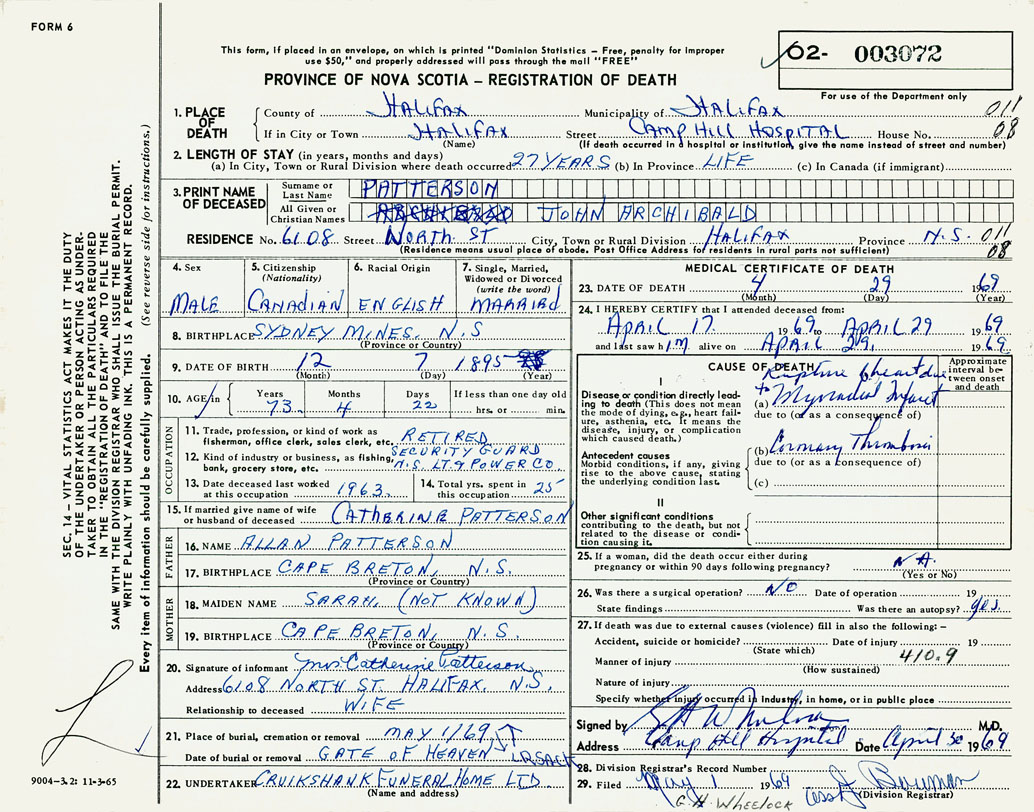 FORM 6
This form, if placed in an envelope, on which is printed "Dominion Statistics – Free, penalty for improper
use $50," and properly addressed will pass through the mail "FREE"
PROVINCE OF NOVA SCOTIA – REGISTRATION OF DEATH
02- 003072
For use of the Department only
1. PLACE OF DEATH
County of HALIFAX Municipality of HALIFAX 011
If in City or Town HALIFAX Street CAMP HILL HOSPITAL House No. 08
(Name) (If death occurred in a hospital or institution, give the name instead of street and number)
2. LENGTH OF STAY (in years, months and days)
(a) In City, Town or Rural Division where death occurred 27 YEARS (b) In Province LIFE (c) In Canada (if immigrant)
3. PRINT NAME OF DECEASED
Surname or Last Name PATTERSON
All Given or Christian Names JOHN ARCHIBALD
RESIDENCE No. 6108 Street NORTH ST City, Town or Rural Division HALIFAX Province N.S. 011
(Residence means usual place of abode. Post Office Address for residents in rural parts not sufficient) 08
4. Sex MALE
5. Citizenship (Nationality) CANADIAN
6. Racial Origin ENGLISH
7. Single, Married, Widowed or Divorced (write the word) MARRIED
8. BIRTHPLACE SYDNEY MINES, N.S
(Province or Country)
9. DATE OF BIRTH 12 7 1895
(Month) (Day) (Year)
10. AGE in Years 73 Months 4 Days 22 If less than one day old hrs. or min.
OCCUPATION
11. Trade, profession, or kind of work as fisherman, office clerk, sales clerk, etc. RETIRED
SECURITY GUARD
12. Kind of industry or business, as fishing, bank, grocery store, etc. N.S. LT. & POWER CO.
13. Date deceased last worked at this occupation 1963
14. Total yrs. spent in this occupation 25
15. If married give name of wife or husband of deceased CATHERINE PATTERSON
FATHER
16. NAME ALLAN PATTERSON
17. BIRTHPLACE CAPE BRETON, N.S.
(Province or Country)
MOTHER
18. MAIDEN NAME SARAH, (NOT KNOWN)
19. BIRTHPLACE CAPE BRETON, N.S.
(Province or Country)
20. Signature of informant Mrs Catherine Patterson
Address 6108 NORTH ST. HALIFAX, N.S.
Relationship to deceased WIFE
21. Place of burial, cremation or removal MAY 1/69
Date of burial or removal GATE OF HEAVEN
22. UNDERTAKER CRUIKSHANK FUNERAL HOME LTD
(Name and address)
MEDICAL CERTIFICATE OF DEATH
23. DATE OF DEATH 4 29 1969
(Month) (Day) (Year)
24. I HEREBY CERTIFY that I attended deceased from:
APRIL 17 1969 to APRIL 29 1969
and last saw him alive on APRIL 29, 1969
CAUSE OF DEATH
Approximate interval between onset and death
I
Disease or condition directly leading to death (This does not mean the mode of dying, e.g., heart failure, asthenia, etc. It means the disease, injury, or complication which caused death.)
Rupture heart due
to
(a) Myocardial Infarct
due to (or as a consequence of)
Antecedent causes
Morbid conditions, if any, giving rise to the above cause, stating the underlying condition last.
(b) Coronary Thrombosis
due to (or as a consequence of)
(c)
II
Other significant conditions
contributing to the death, but not related to the disease or condition causing it.
25. If a woman, did the death occur either during pregnancy or within 90 days following pregnancy? N.A.
(Yes or No)
26. Was there a surgical operation? NO Date of operation 19
State findings Was there an autopsy? yes.
27. If death was due to external causes (violence) fill in also the following: –
Accident, suicide or homicide? Date of injury 19
(State which) 410.9
Manner of injury
(How sustained)
Nature of injury
Specify whether injury occurred in Industry, in home, or in public place
Signed by M.D.
Address Camp Hill Hospital Date April 30 1969
28. Division Registrar's Record Number
29. Filed May 1 1969 Bowman
(Division Registrar)
G. H. WHEELOCK
SEC. 14 – VITAL STATISTICS ACT MAKES IT THE DUTY
OF THE UNDERTAKER OR PERSON ACTING AS UNDER-
TAKER TO OBTAIN ALL THE PARTICULARS REQUIRED
IN THE "REGISTRATION OF DEATH" AND TO FILE THE
SAME WITH THE DIVISION REGISTRAR WHO SHALL ISSUE THE BURIAL PERMIT.
WRITE PLAINLY WITH UNFADING INK. THIS IS A PERMANENT RECORD.
Every item of information should be carefully supplied. (See reverse side for instructions.)
9004-3.2: 11-3-65